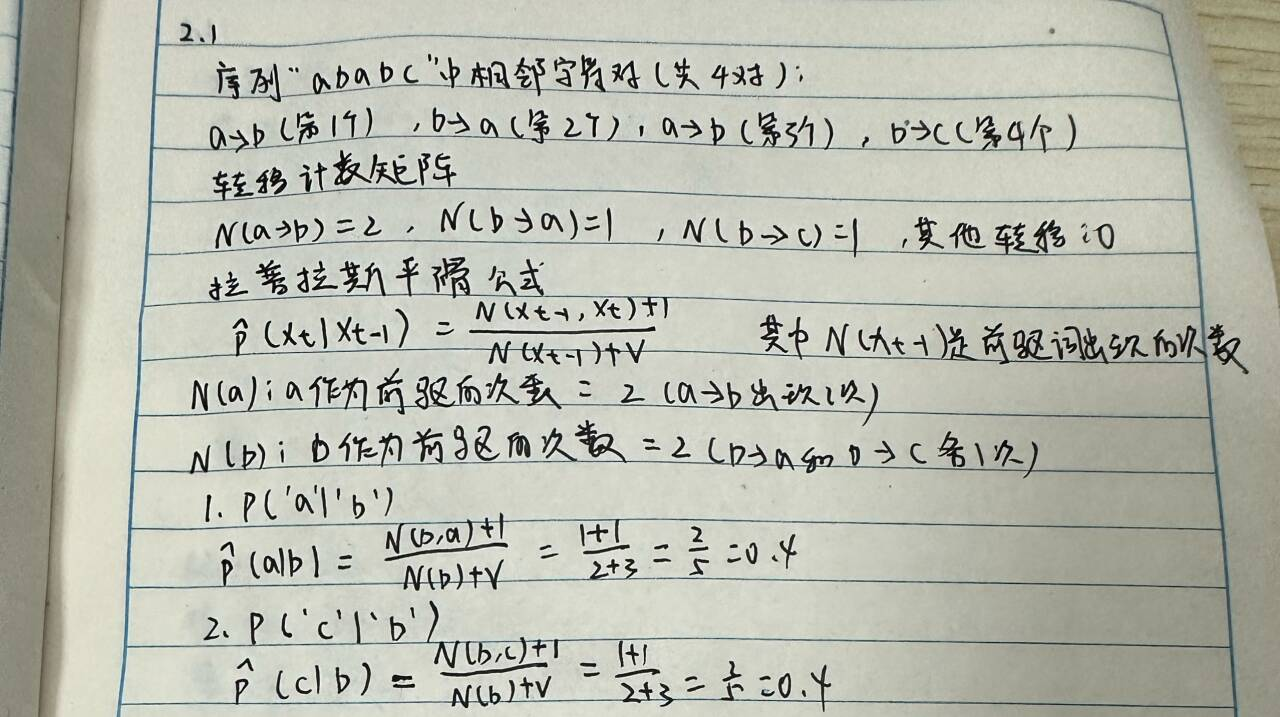 2.1
序列"ababc"中相邻字符对(共4对):
a→b(第1个),b→a(第2个),a→b(第3个),b→c(第4个)
转移计数矩阵
N(a→b)=2,N(b→a)=1,N(b→c)=1,其他转移:0
拉普拉斯平滑公式
p̂(xt|xt-1) = N(xt-1,xt)+1 / N(xt-1)+V 其中N(xt-1)是前驱词出现的次数
N(a):a作为前驱的次数=2(a→b出现2次)
N(b):b作为前驱的次数=2(b→a和b→c各1次)
1. P('a'|'b')
p̂(a|b) = N(b,a)+1 / N(b)+V = 1+1 / 2+3 = 2/5 =0.4
2. P('c'|'b')
p̂(c|b) = N(b,c)+1 / N(b)+V = 1+1 / 2+3 = 2/5 =0.4